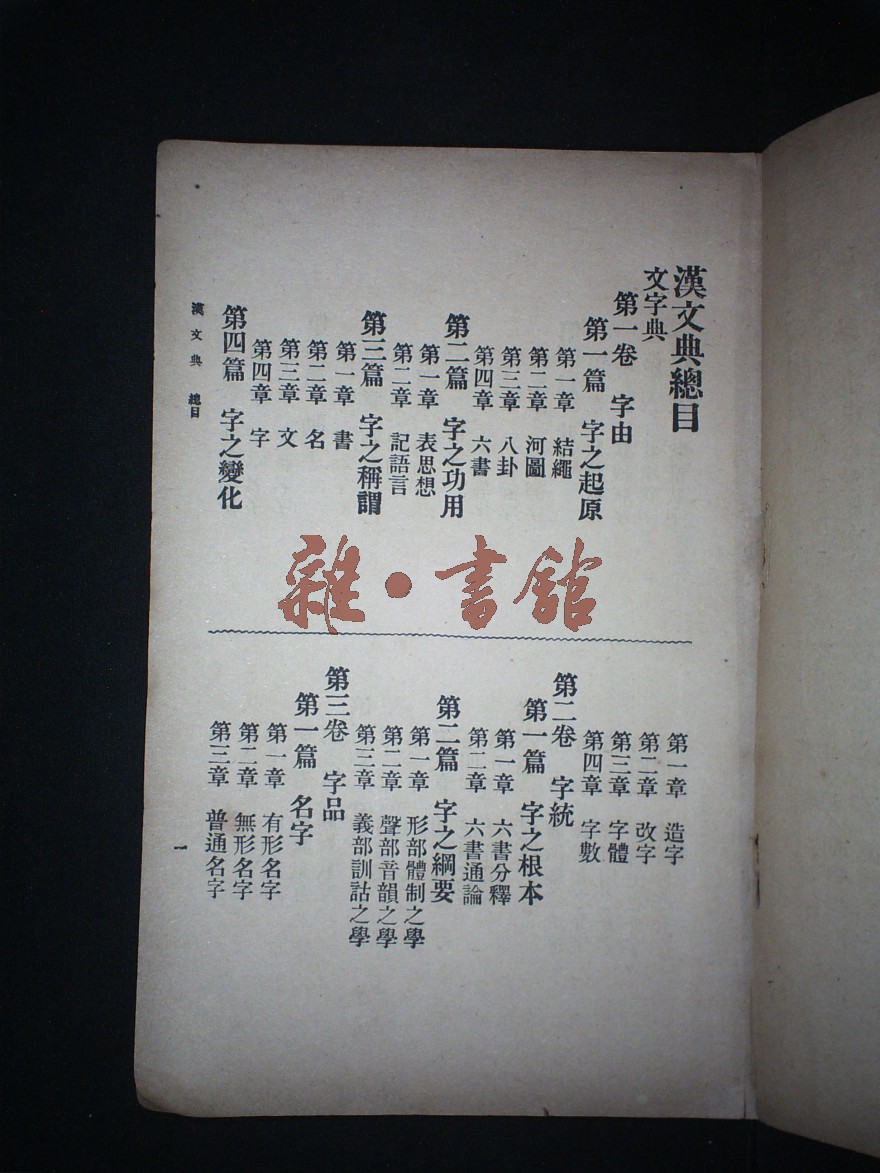 漢文典總目
文字典
第一卷 字由
第一篇 字之起原
第一章 結繩
第二章 河圖
第三章 八卦
第四章 六書
第二篇 字之功用
第一章 表思想
第二章 記語言
第三篇 字之稱謂
第一章 書
第二章 名
第三章 文
第四章 字
第四篇 字之變化
第一章 造字
第二章 改字
第三章 字體
第四章 字數
第二卷 字統
第一篇 字之根本
第一章 六書分釋
第二章 六書通論
第二篇 字之綱要
第一章 形部體制之學
第二章 聲部音韻之學
第三章 義部訓詁之學
第三卷 字品
第一篇 名字
第一章 有形名字
第二章 無形名字
第三章 普通名字
漢文典 總目
一
雜·書館